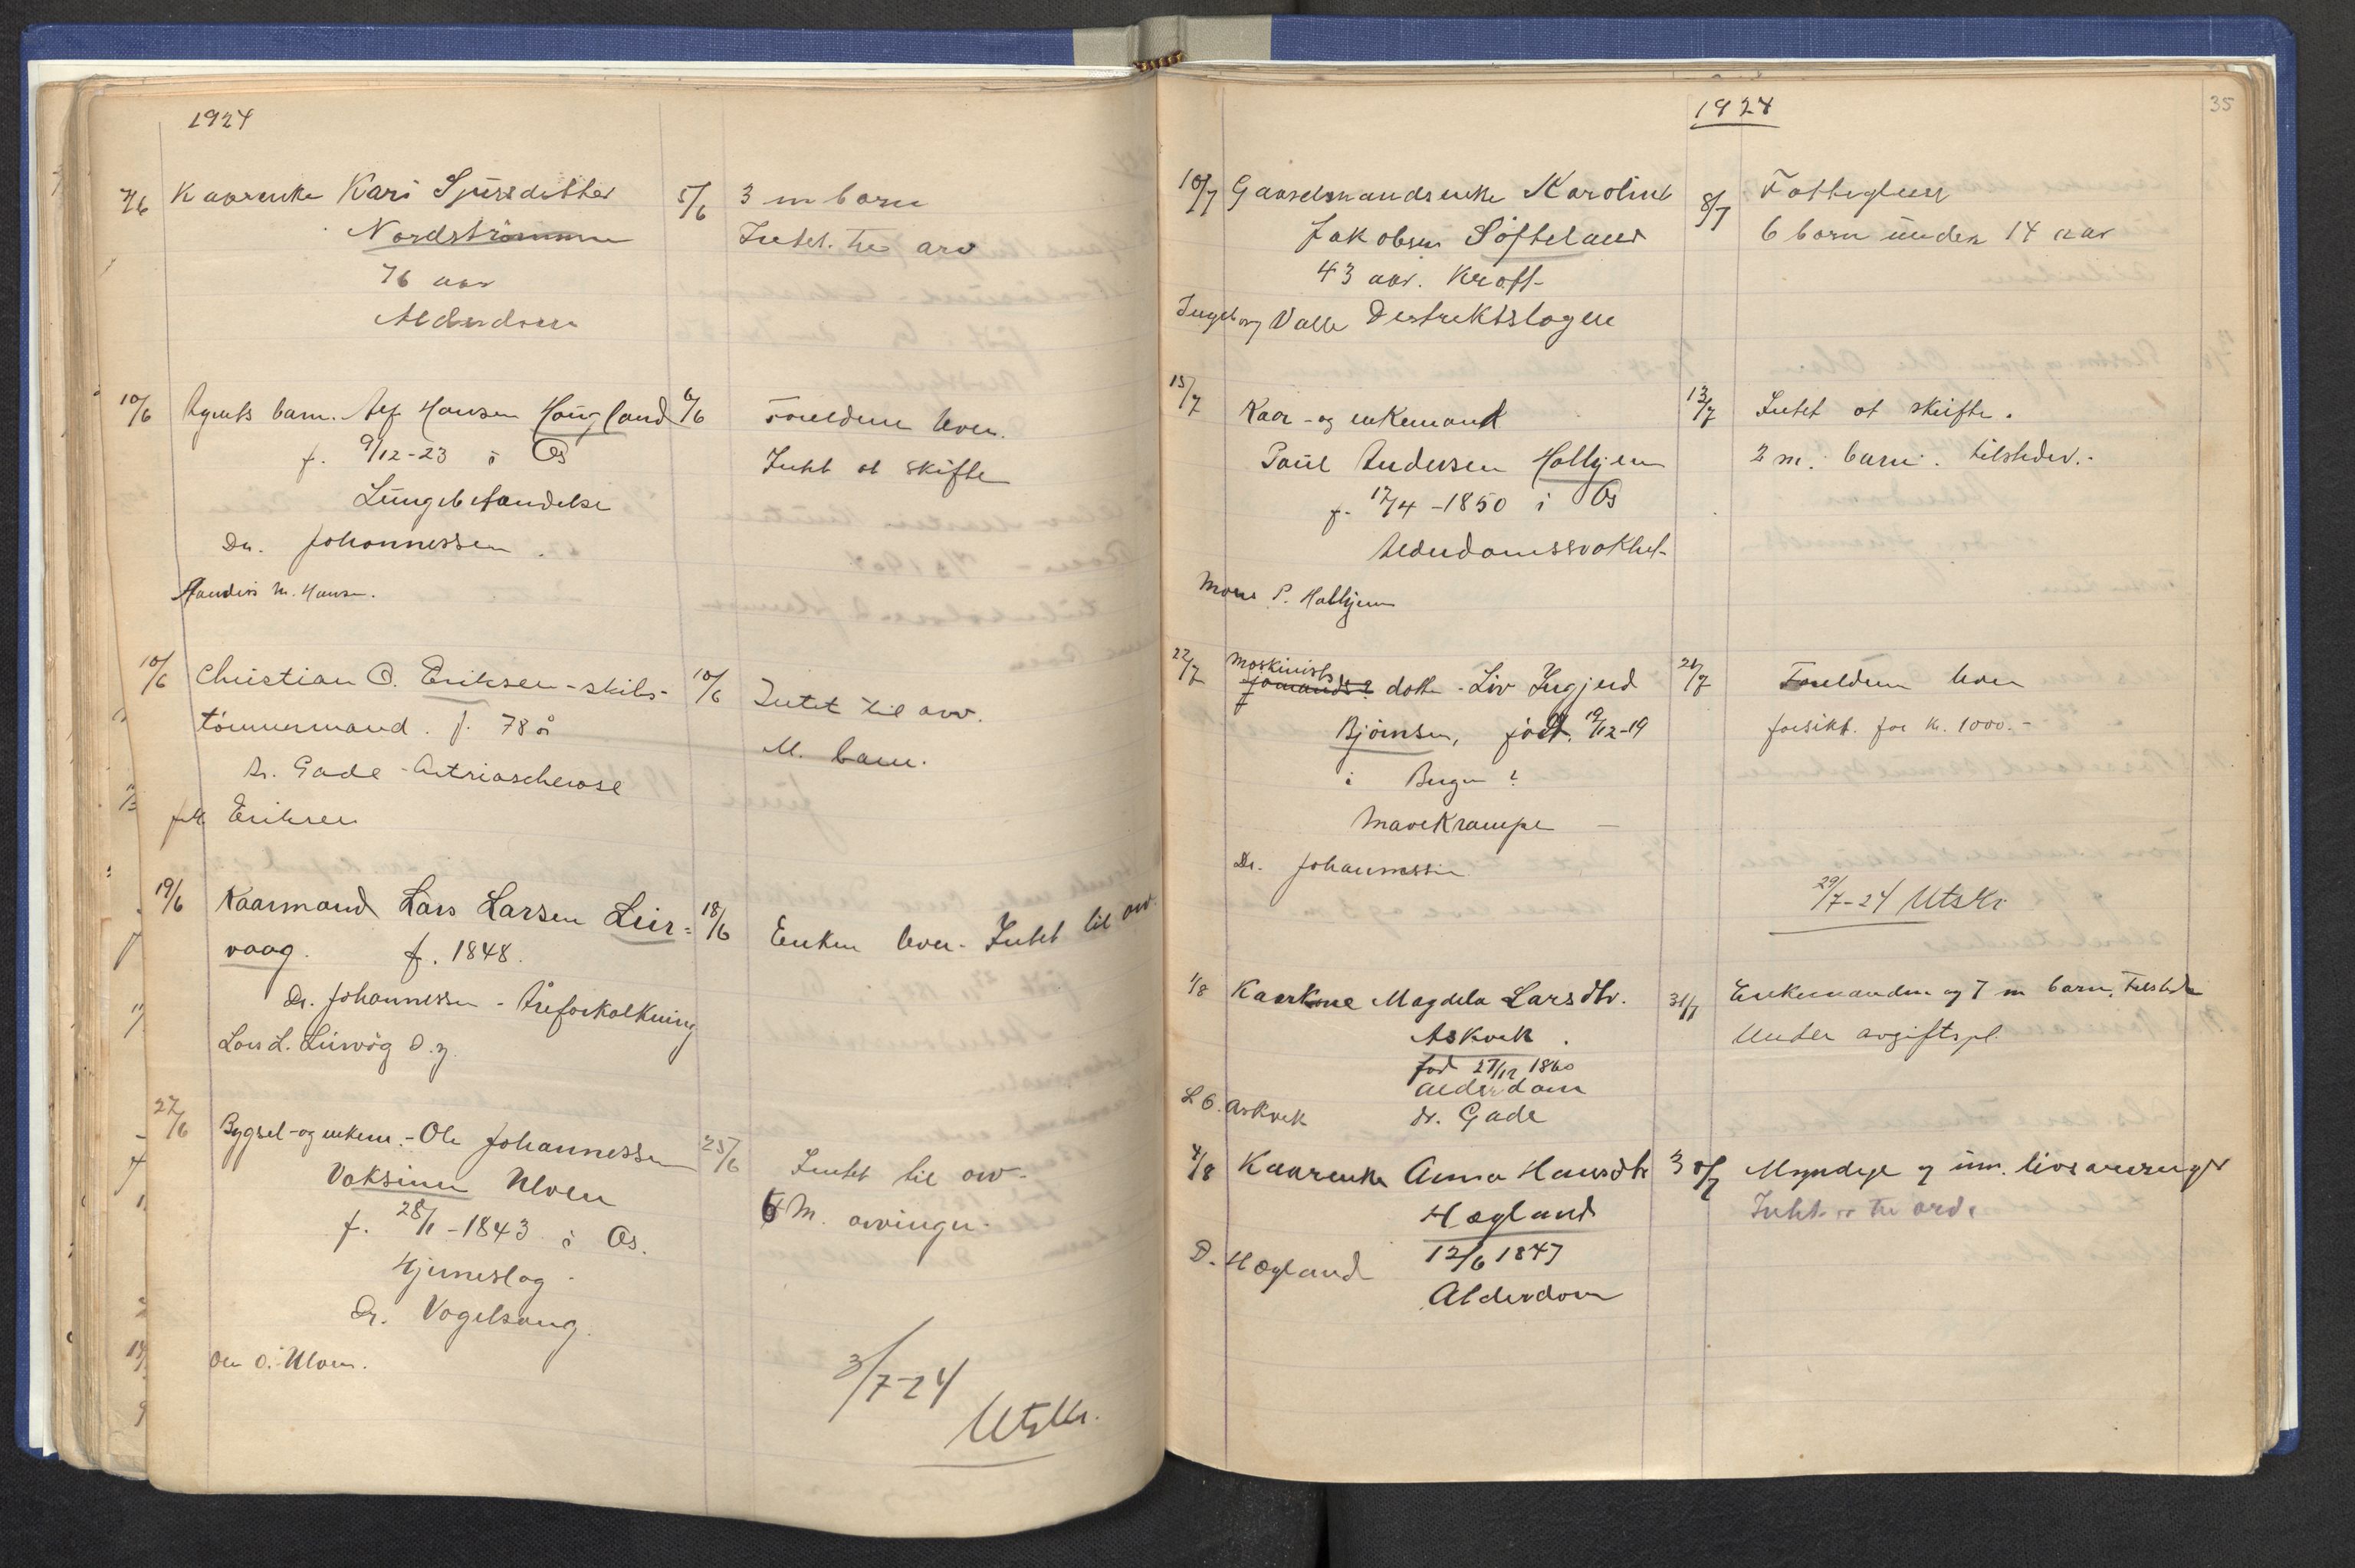 1924
7/6 Kaarenke Kari Sjursdatter 5/6 3 m barn
Nordstrømmen Intet til arv
76 aar
Alderdom
10/6 Agents barn. Alf Hansen Haugland 6/6 Foreldrene lever.
f. 9/12-23 i Os Intet at skifte
Lungebetændelse
Dr. Johannessen.
M. Hansen.
10/6 Christian O. Eriksen - skibs- 10/6 Intet til arv.
tømmermand. f. 78 å M. barn.
Dr. Gade - Artriosclerose
Eriksen
19/6 Kaarmand Lars Larsen Lur= 18/6 Enken lever - Intet til arv.
vaag. f. 1848.
Dr. Johannessen - Åreforkalkning
Lars L. Lurvåg D.y.
27/6 Bygsel- og enkem. - Ole Johannessen 25/6 Intet til arv.
Voksinen Ulven 6 M. arvinger.
f. 28/11-1843 i Os.
Hjerneslag
Dr. Vogelsang.
Ole O. Ulven.
3/7-24
Utskr.
1924 35
10/7 Gaardsmandsenke Karoline 8/7 Fattiglem
Jakobsen Søfteland 6 barn under 14 aar
43 aar. Kræft-
Ingeborg Valle Destriktslægen
15/7 Kaar- og enkemand 13/7 Intet at skifte.
Paul Andersen Halhjem 2 m. barn. tilsteder.-
f. 17/4-1850 i Os
Alderdomssvakhet-
Mons P. Halhjem
22/7 Maskinists 21/7 Foreldrene lever
datter - Liv Ingjerd
Bjørnsen, født 19/12-19 forsikt. for kr. 1000.-
i Bergen?
Mavekrampe -
Dr. Johannessen
29/7-24 Utskr
1/8 Kaarkone Magdela Larsdtr. 31/7 Enkemanden og 7 m barn. Tilstede
Askvik. Under avgiftspl.
fød 27/12 1860
alderdom
L O. Askvik dr. Gade
4/8 Kaarenke Anna Hansdtr 3 Myndige
Hægland Intet til
D. Hægland 12/6 1847
Alderdom